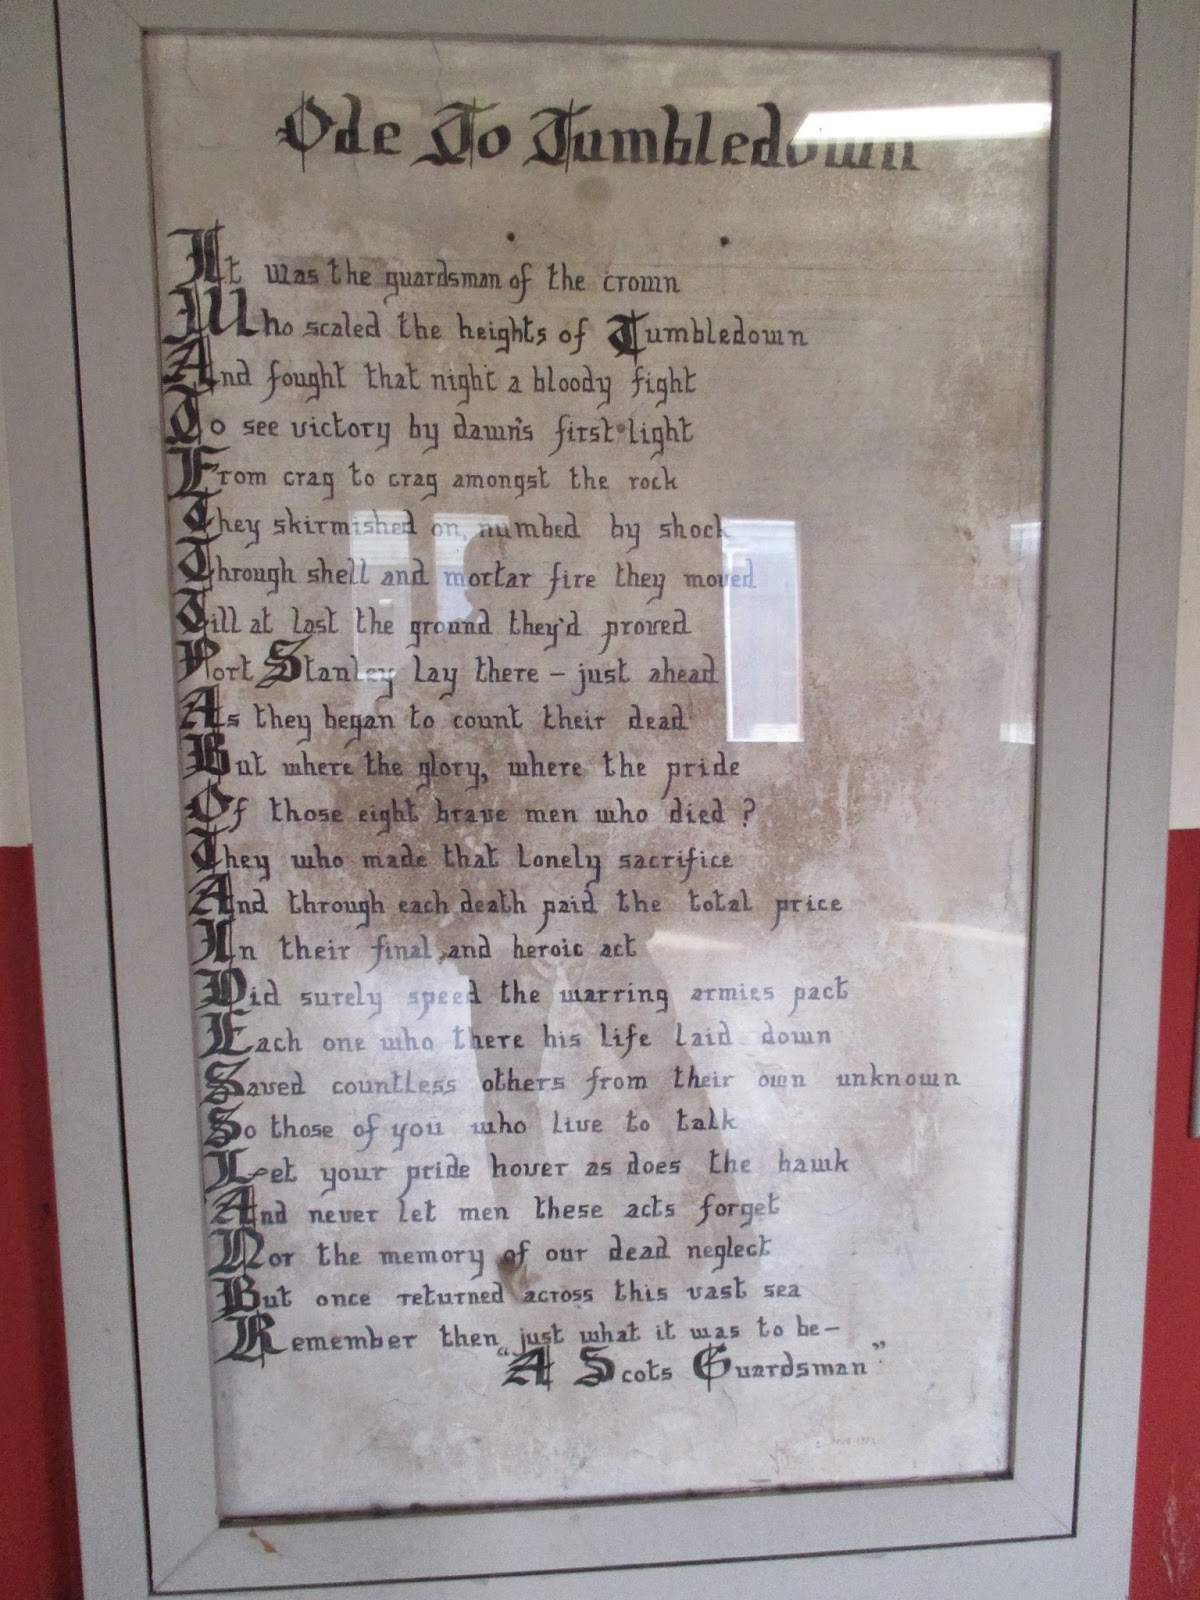 Ode To Tumbledown
It was the guardsman of the crown
Who scaled the heights of Tumbledown
And fought that night a bloody fight
To see victory by dawn's first light
From crag to crag amongst the rock
They skirmished on, numbed by shock
Through shell and mortar fire they moved
Till at last the ground they'd proved
Port Stanley lay there – just ahead
As they began to count their dead
But where the glory, where the pride
Of those eight brave men who died ?
They who made that lonely sacrifice
And through each death paid the total price
In their final, and heroic act
Did surely speed the warring armies pact
Each one who there his life laid down
Saved countless others from their own unknown
So those of you who live to talk
Let your pride hover as does the hawk
And never let men these acts forget
Nor the memory of our dead neglect
But once returned across this vast sea
Remember then just what it was to be –
"A Scots Guardsman"